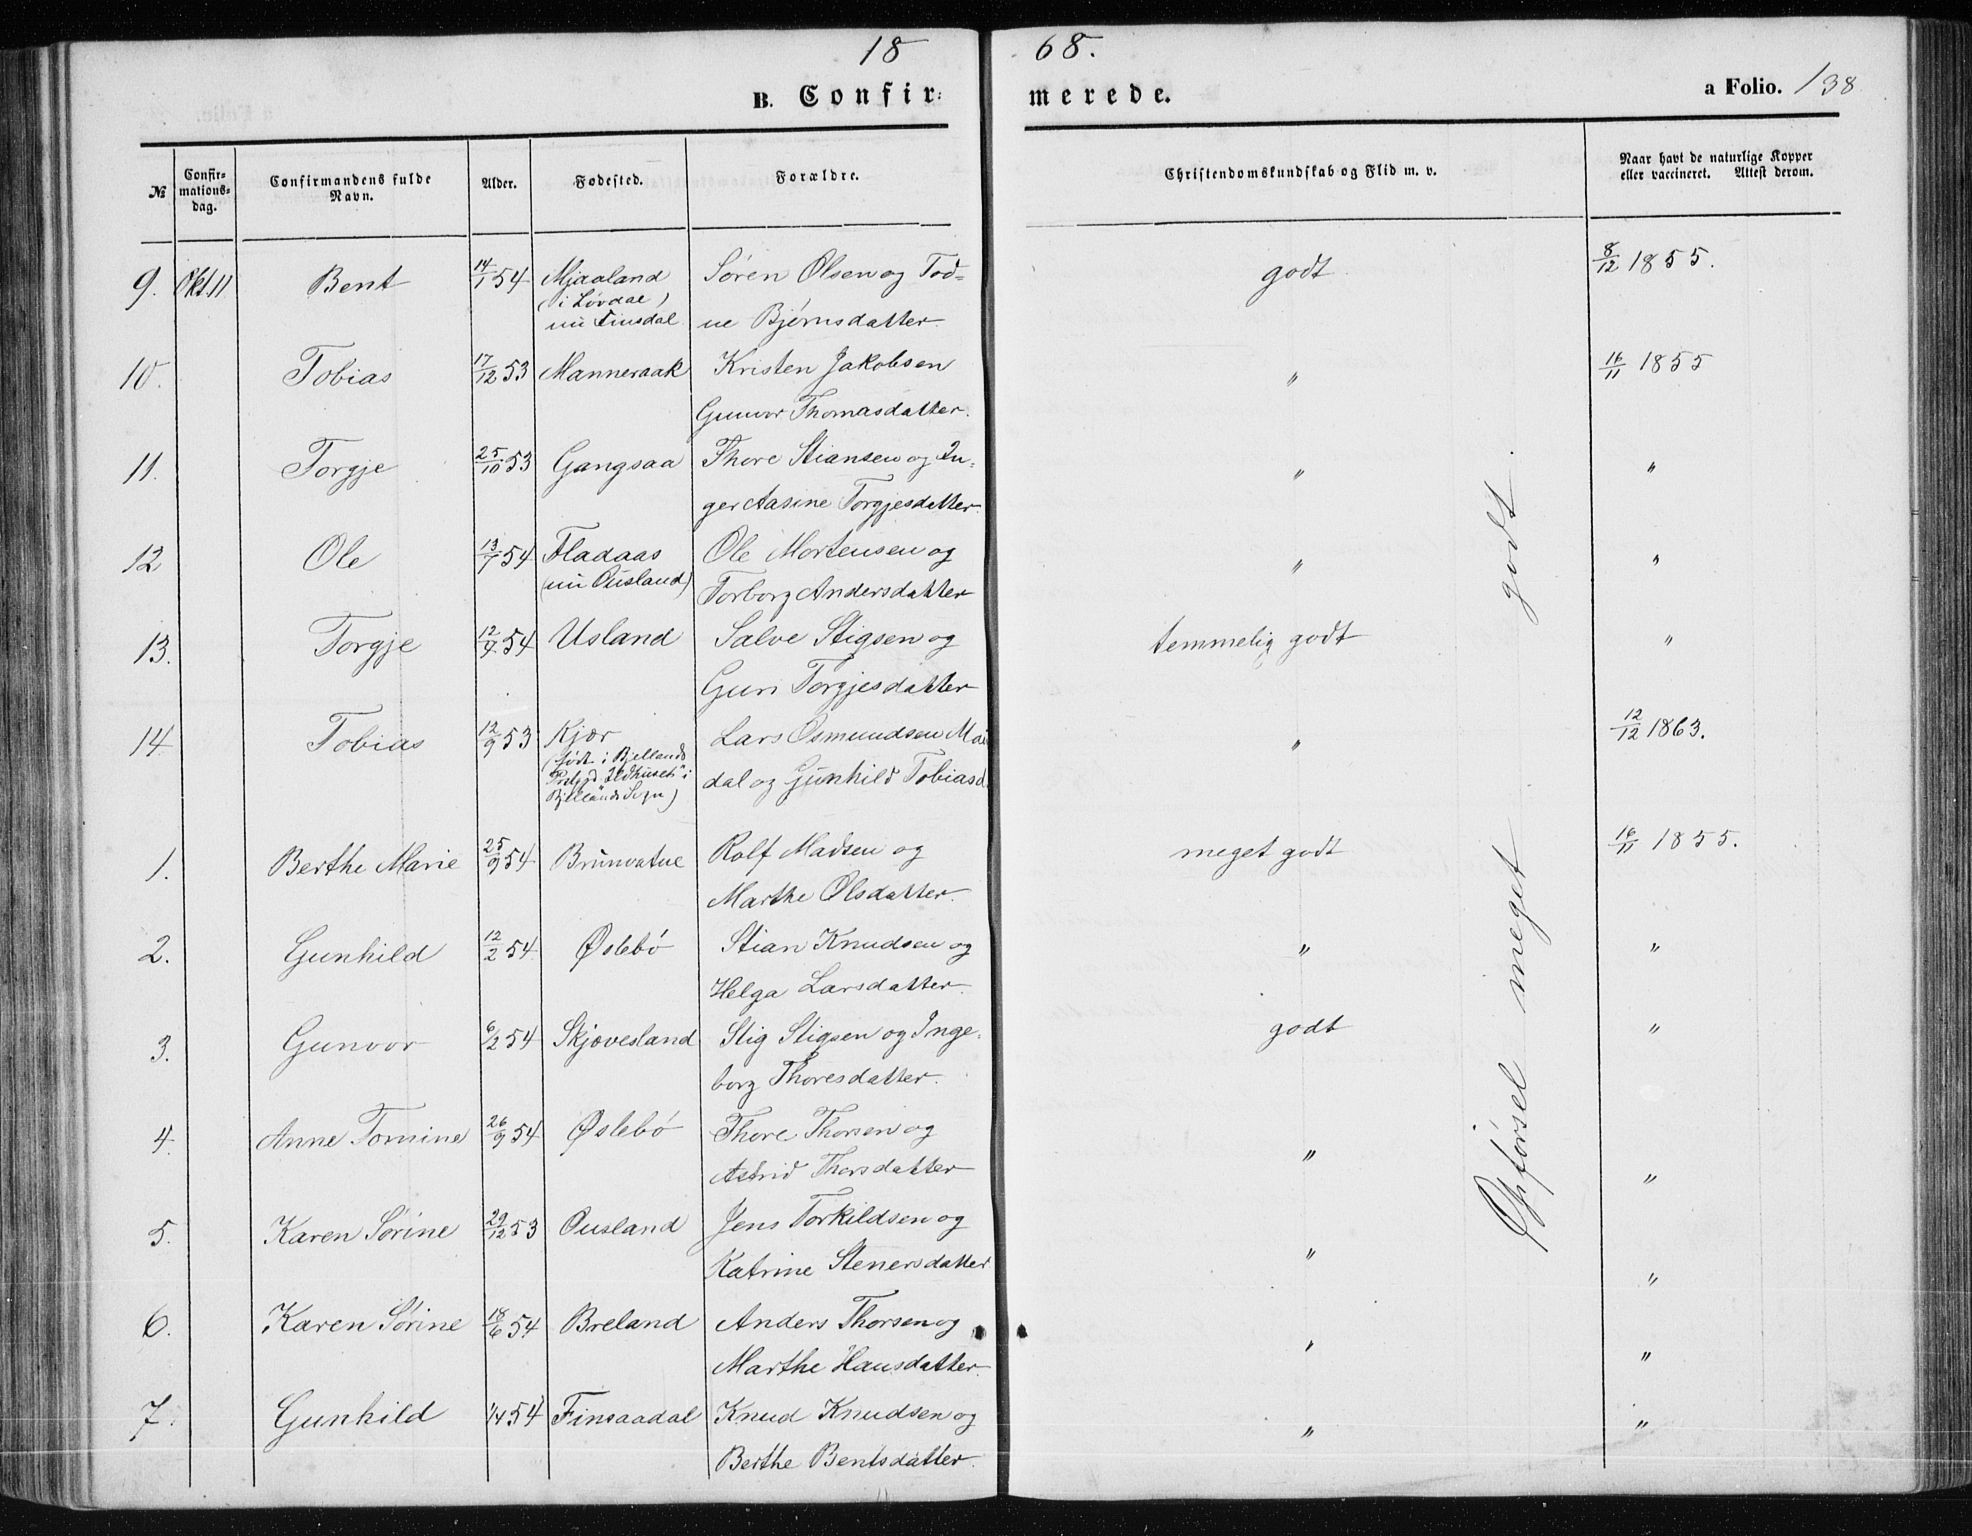 1868.
B. Confirmerede.
a Folio. 138
№ Confirmations-dag. Confirmandens fulde Navn. Alder. Fødested. Forældre. Christendomskundskab og Flid m. v. Naar havt de naturlige Kopper eller vaccineret. Attest derom.
9. Okt. 11 Bent 14/1 54 Mjaaland Sören Olsen og Tod= godt 8/12 1855.
(i Lövdal)
nu Finsdal ne Björnsdatter.
10. Tobias 17/12 53 Manneraak Kristen Jakobsen " 16/11 1855
Gunvor Thomasdatter.
11. Torgje 25/10 53 Gangsaa Thore Stiansen og In- " "
ger Aasine Torgjesdatter
12 Ole 13/7 54 Fladaas Ole Mortensen og " "
(nu Ousland) Torborg Andersdatter
13. Torgje 12/9 54 Usland Salve Stigsen og temmelig godt "
Guri Torgjesdatter
14. Tobias 12/9 53 Kjær Lars Osmundsen " 12/12 1863.
(född i Bjellands
Prstgjd "Ildhuset" i dal og Gunhild Tobiasd.
Bjellands Sogn)
1. Berthe Marie 25/9 54 Brunvatne Rolf Madsen og meget godt 16/11 1855.
Marthe Olsdatter.
2. Gunhild 12/2 54 Øslebö Stian Knudsen og " "
Helga Larsdatter.
3. Gunvor 6/2 54 Skjævesland Stig Stigsen og Inge- godt "
borg Thoresdatter.
4. Anne Tomine 26/9 54 Øslebö Thore Thorsen og " "
Astrid Thorsdatter
5. Karen Sörine 29/12 53 Ousland Jens Torkildsen og " "
Katrine Stenersdatter
6. Karen Sörine 18/6 54 Breland Anders Thorsen og " "
Marthe Hansdatter.
7. Gunhild 1/4 54 Finsaadal Knud Knudsen og " "
Berthe Bentsdatter.
Opförsel meget godt.